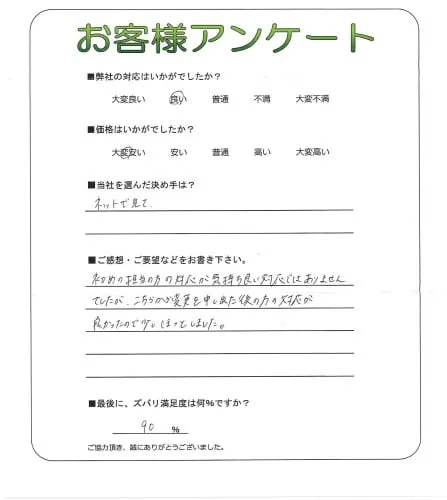 お客様アンケート
■弊社の対応はいかがでしたか？
大変良い 良い 普通 不満 大変不満
■価格はいかがでしたか？
大変安い 安い 普通 高い 大変高い
■当社を選んだ決め手は？
ネットで見て、
■ご感想・ご要望などをお書き下さい。
初めの担当の方の対応が気持ち良い対応ではありません
でしたが、こちらから変更を申し出た後の方の対応が
良かったので少しほっとしました。
■最後に、ズバリ満足度は何％ですか？
90 ％
ご協力頂き、誠にありがとうございました。